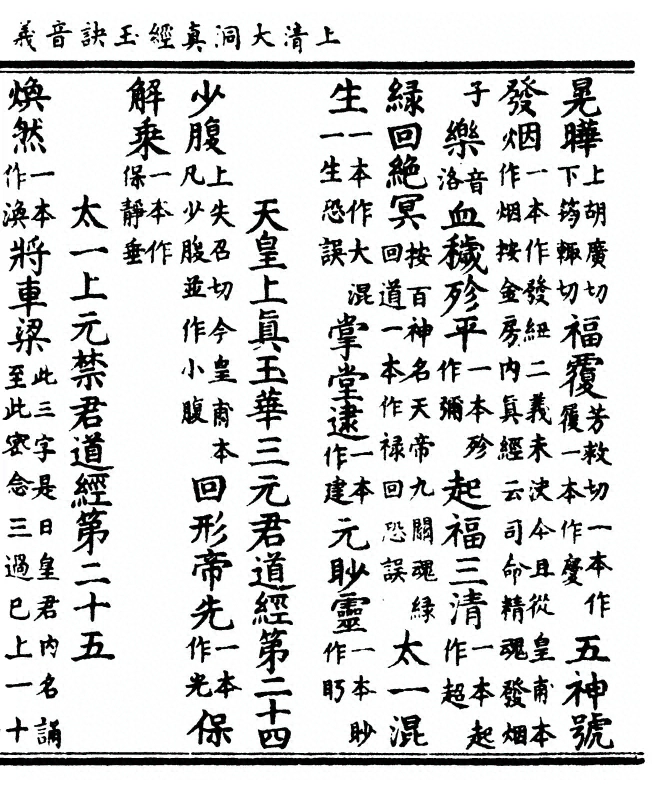 上清大洞真經玉訣音義
晃曄上胡廣切下筠輒切福覆芳救切一本作履一本作慶五神號
發烟一本作發紐二義未決今且從皇甫本作烟按金房內眞經云司命精魂發烟
子樂音洛血穢殄平一本殄作彌起福三清一本起作超
緑回絶冥按百神名天帝九關魂緑回道一本作禄回恐誤太一混
生一本作大混一生恐誤掌堂逮一本作建元眇靈一本眇作眄
天皇上眞玉華三元君道經第二十四
少腹上失召切今皇甫本凡少腹並作小腹回形帝先一本作光保
解乘一本作保靜垂
太一上元禁君道經第二十五
煥然一本作渙將車梁此三字是日皇君内名誦至此密念三過巳上一十